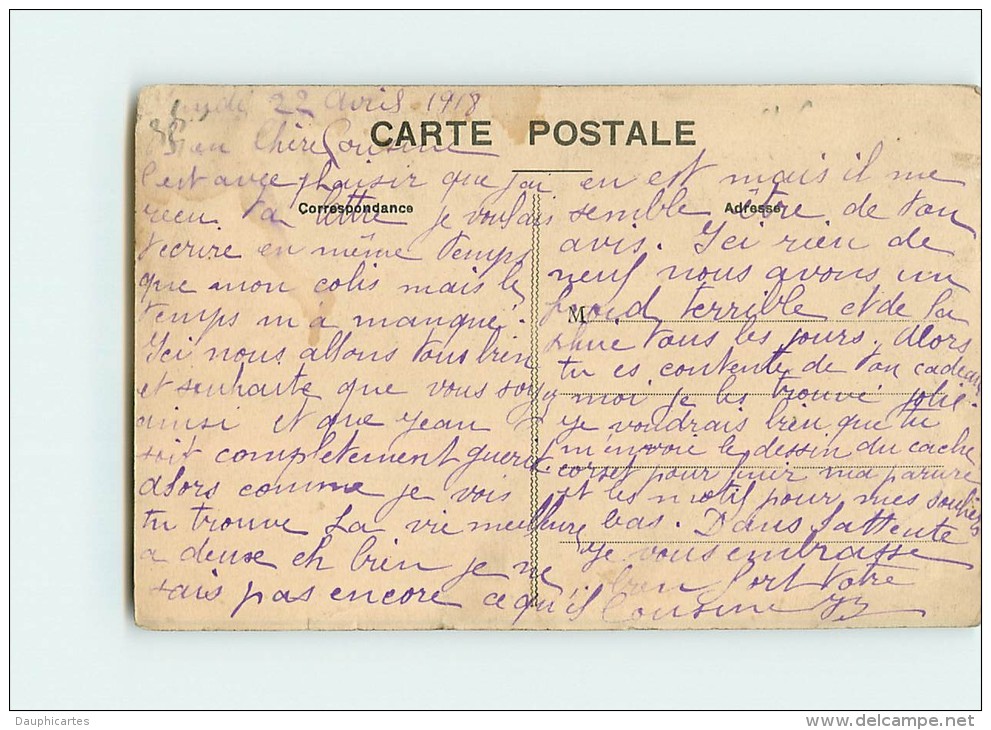 22 Avril 1918
CARTE POSTALE
Chère Cousine
C'est avec plaisir que j'ai
Correspondance
recu ta lettre je voulais
t'ecrire en même temps
que mon colis mais le
temps m'a manqué.
Ici nous allons tous bien
et souhaite que vous soyez
ainsi et que Jean
soit completement gueri.
alors comme je vois
tu trouve la vie meilleure
a deux eh bien je ne
sais pas encore ce qu'il
en est mais il me
Adresse
semble être de ton
avis. Ici rien de
neuf nous avons un
M
froid terrible et de la
pluie tous les jours, Alors
tu es contente de ton cadeau
moi je les trouve jolie.
je voudrais bien que tu
m'envoie le dessin du cache
corset pour finir ma parure
et les motif pour mes souliers
bas. Dans l'attente
je vous embrasse
bien fort Votre
Cousine
Dauphicartes
www.delcampe.net